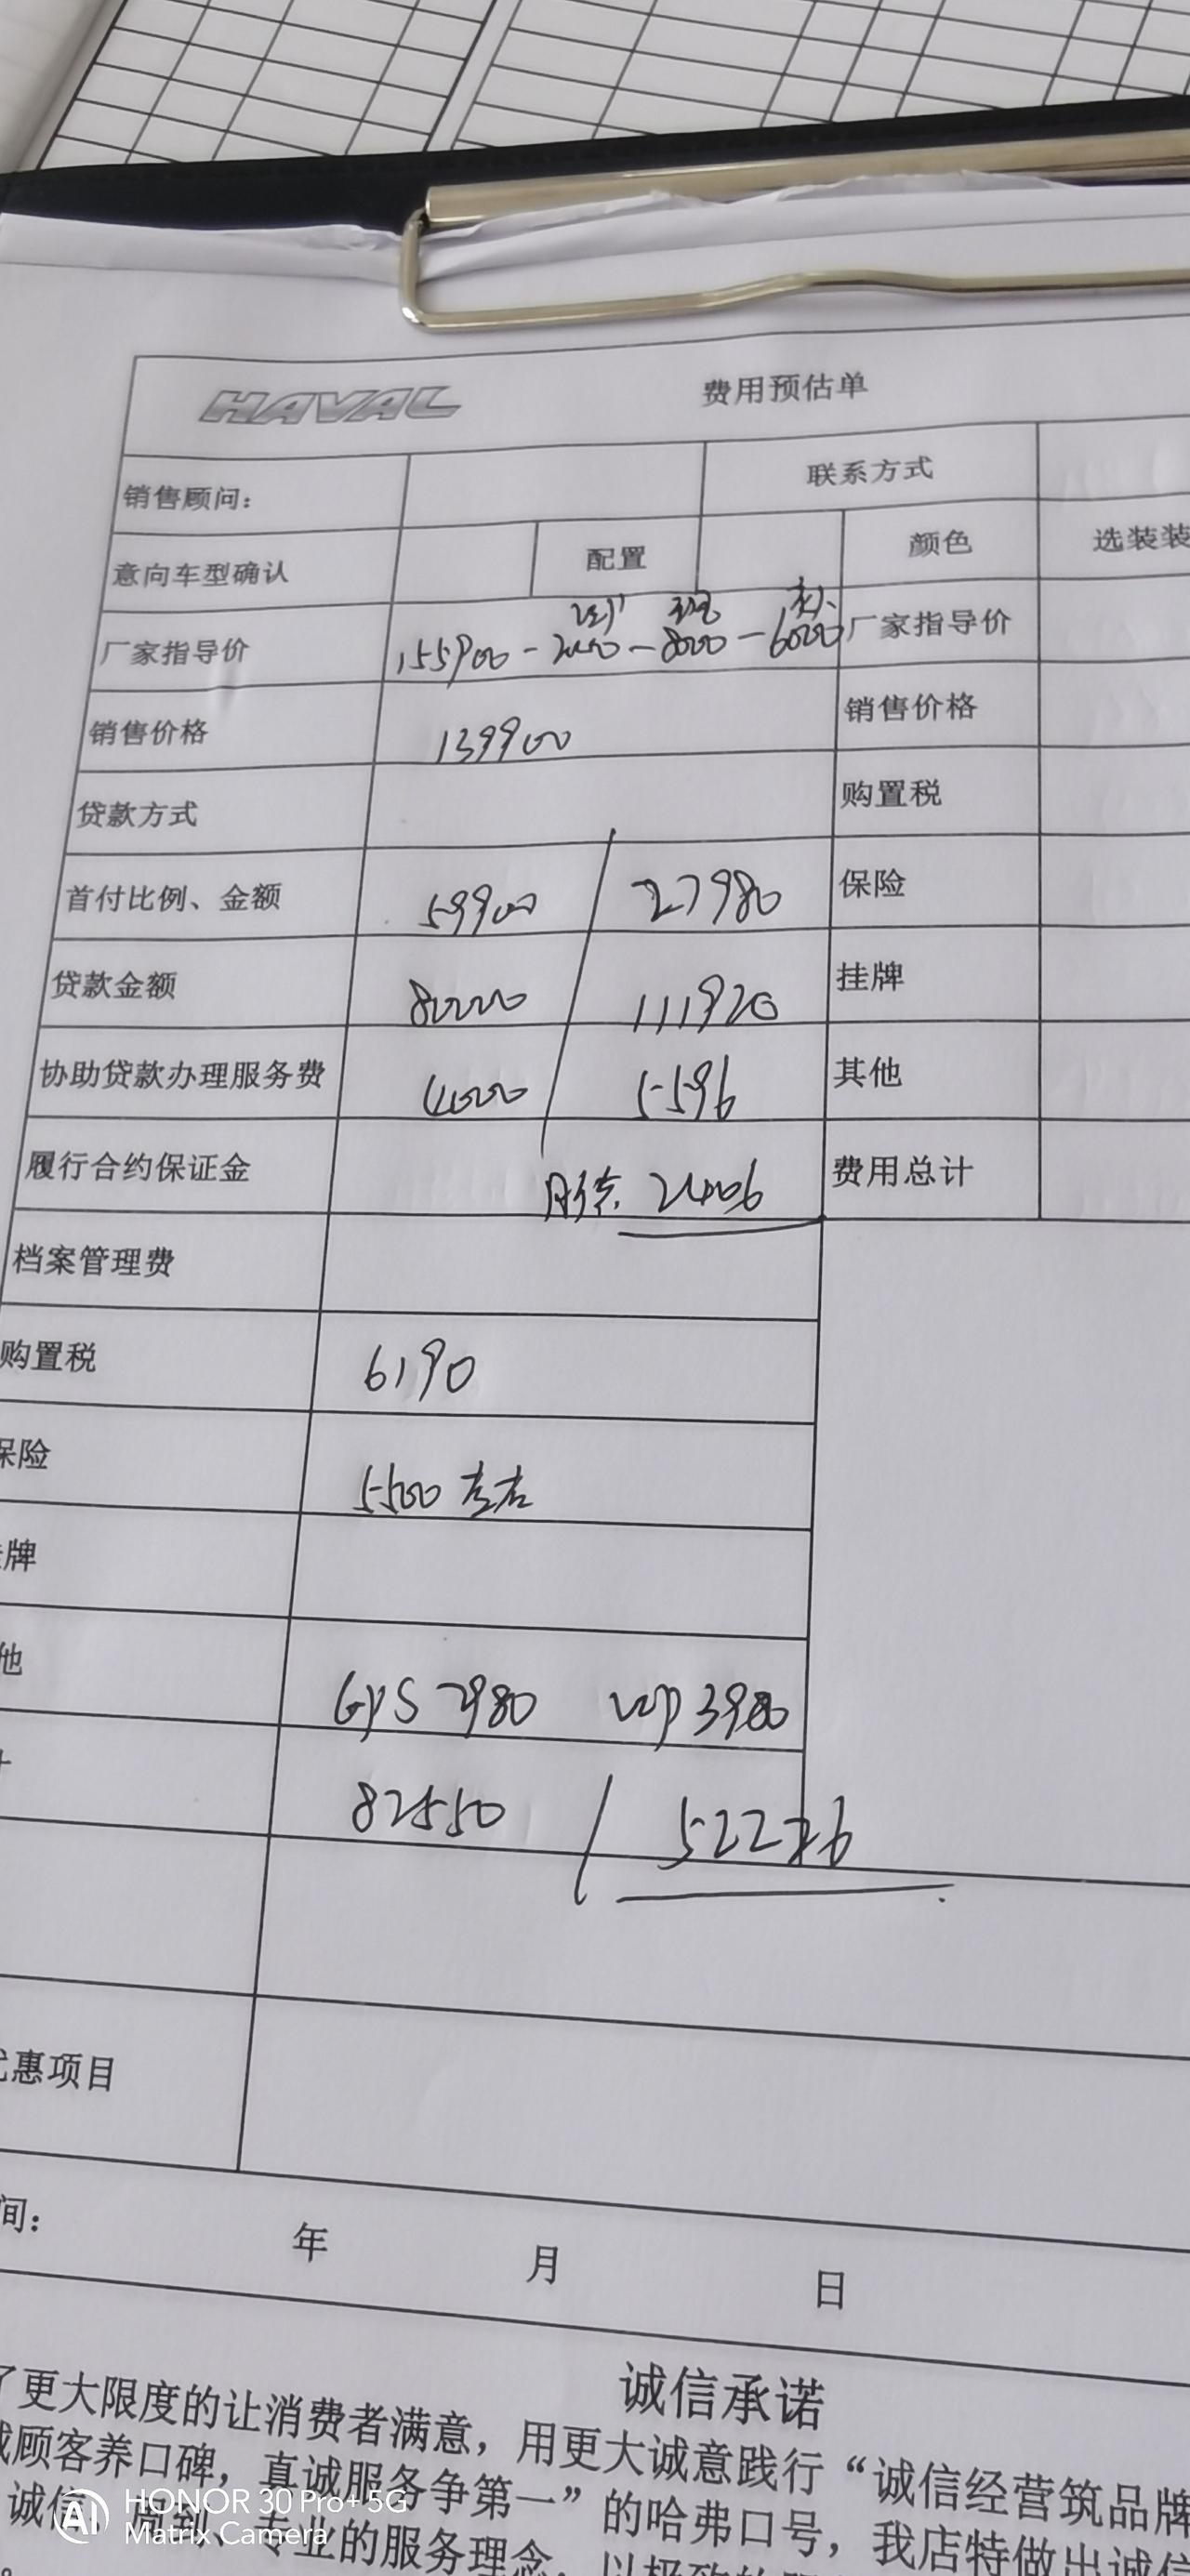 HAVAL 费用预估单
销售顾问: 联系方式
意向车型确认 配置 颜色 选装装
厂家指导价 155900-2000-8000-6000 厂家指导价
销售价格 139900 销售价格
贷款方式 购置税
首付比例、金额 59900 / 27980 保险
贷款金额 80000 / 111920 挂牌
协助贷款办理服务费 4000 / 5596 其他
履行合约保证金 月供 费用总计
档案管理费
购置税 6190
保险 5500左右
牌
他 GPS 2980 VIP 3980
82550 / 52226
惠项目
间: 年 月 日
诚信承诺
了更大限度的让消费者满意，用更大诚意践行“诚信经营筑品牌
顾客养口碑，真诚服务争第一”的哈弗口号，我店特做出诚信
诚信 业的服务理念，以极致的
HONOR 30 Pro+ 5G
AI Matrix Camera